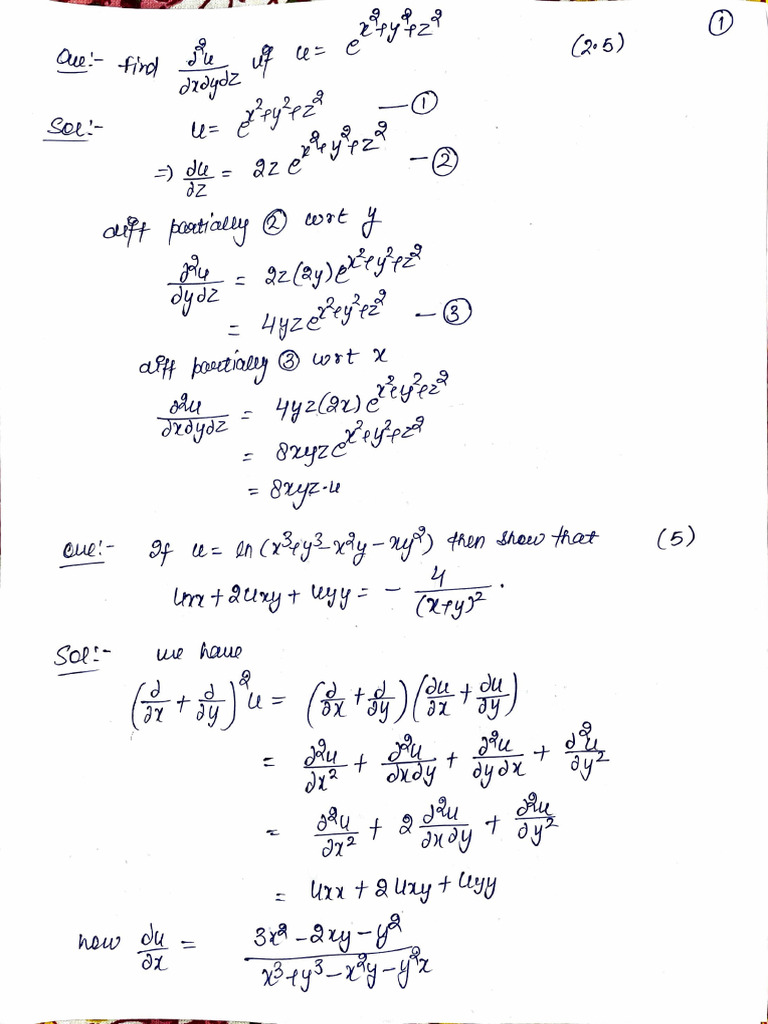 ①
Que:- find ∂²u/∂x∂y∂z if u = e^(x²+y²+z²) (2.5)
Sol:- u = e^(x²+y²+z²) —①
⇒ ∂u/∂z = 2z e^(x²+y²+z²) —②
diff partially ② wrt y
∂²u/∂y∂z = 2z(2y)e^(x²+y²+z²)
= 4yze^(x²+y²+z²) —③
diff partially ③ wrt x
∂²u/∂x∂y∂z = 4yz(2x)e^(x²+y²+z²)
= 8xyze^(x²+y²+z²)
= 8xyz·u
Que:- If u = ln(x³+y³-x²y-xy²) then show that (5)
uxx+2uxy+uyy = - 4/(x+y)².
Sol:- we have
(∂/∂x + ∂/∂y)²u = (∂/∂x + ∂/∂y)(∂u/∂x + ∂u/∂y)
= ∂²u/∂x² + ∂²u/∂x∂y + ∂²u/∂y∂x + ∂²u/∂y²
= ∂²u/∂x² + 2 ∂²u/∂x∂y + ∂²u/∂y²
= uxx+2uxy+uyy
now ∂u/∂x = (3x²-2xy-y²)/(x³+y³-x²y-y²x)